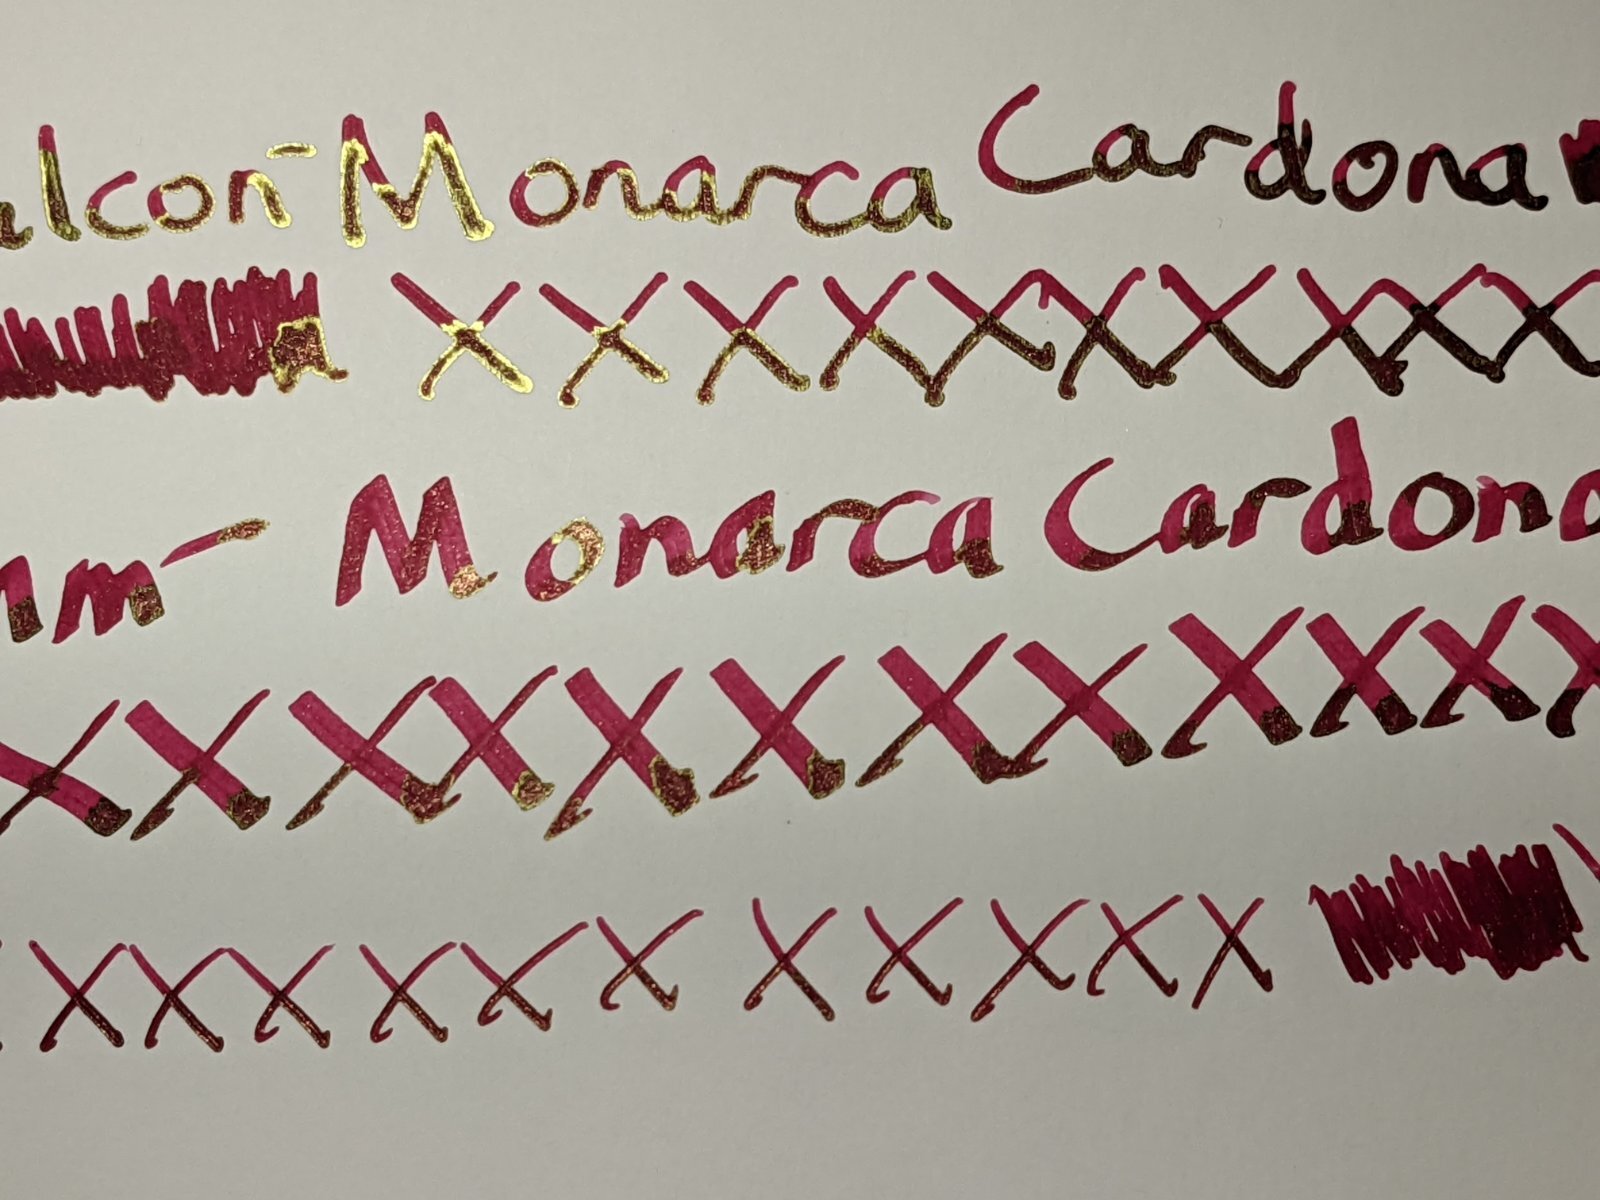 alcon - Monarca Cardona
X X X X X X X X X
mm - Monarca Cardona
X X X X X X X X X X X X
X X X X X X X X X X X